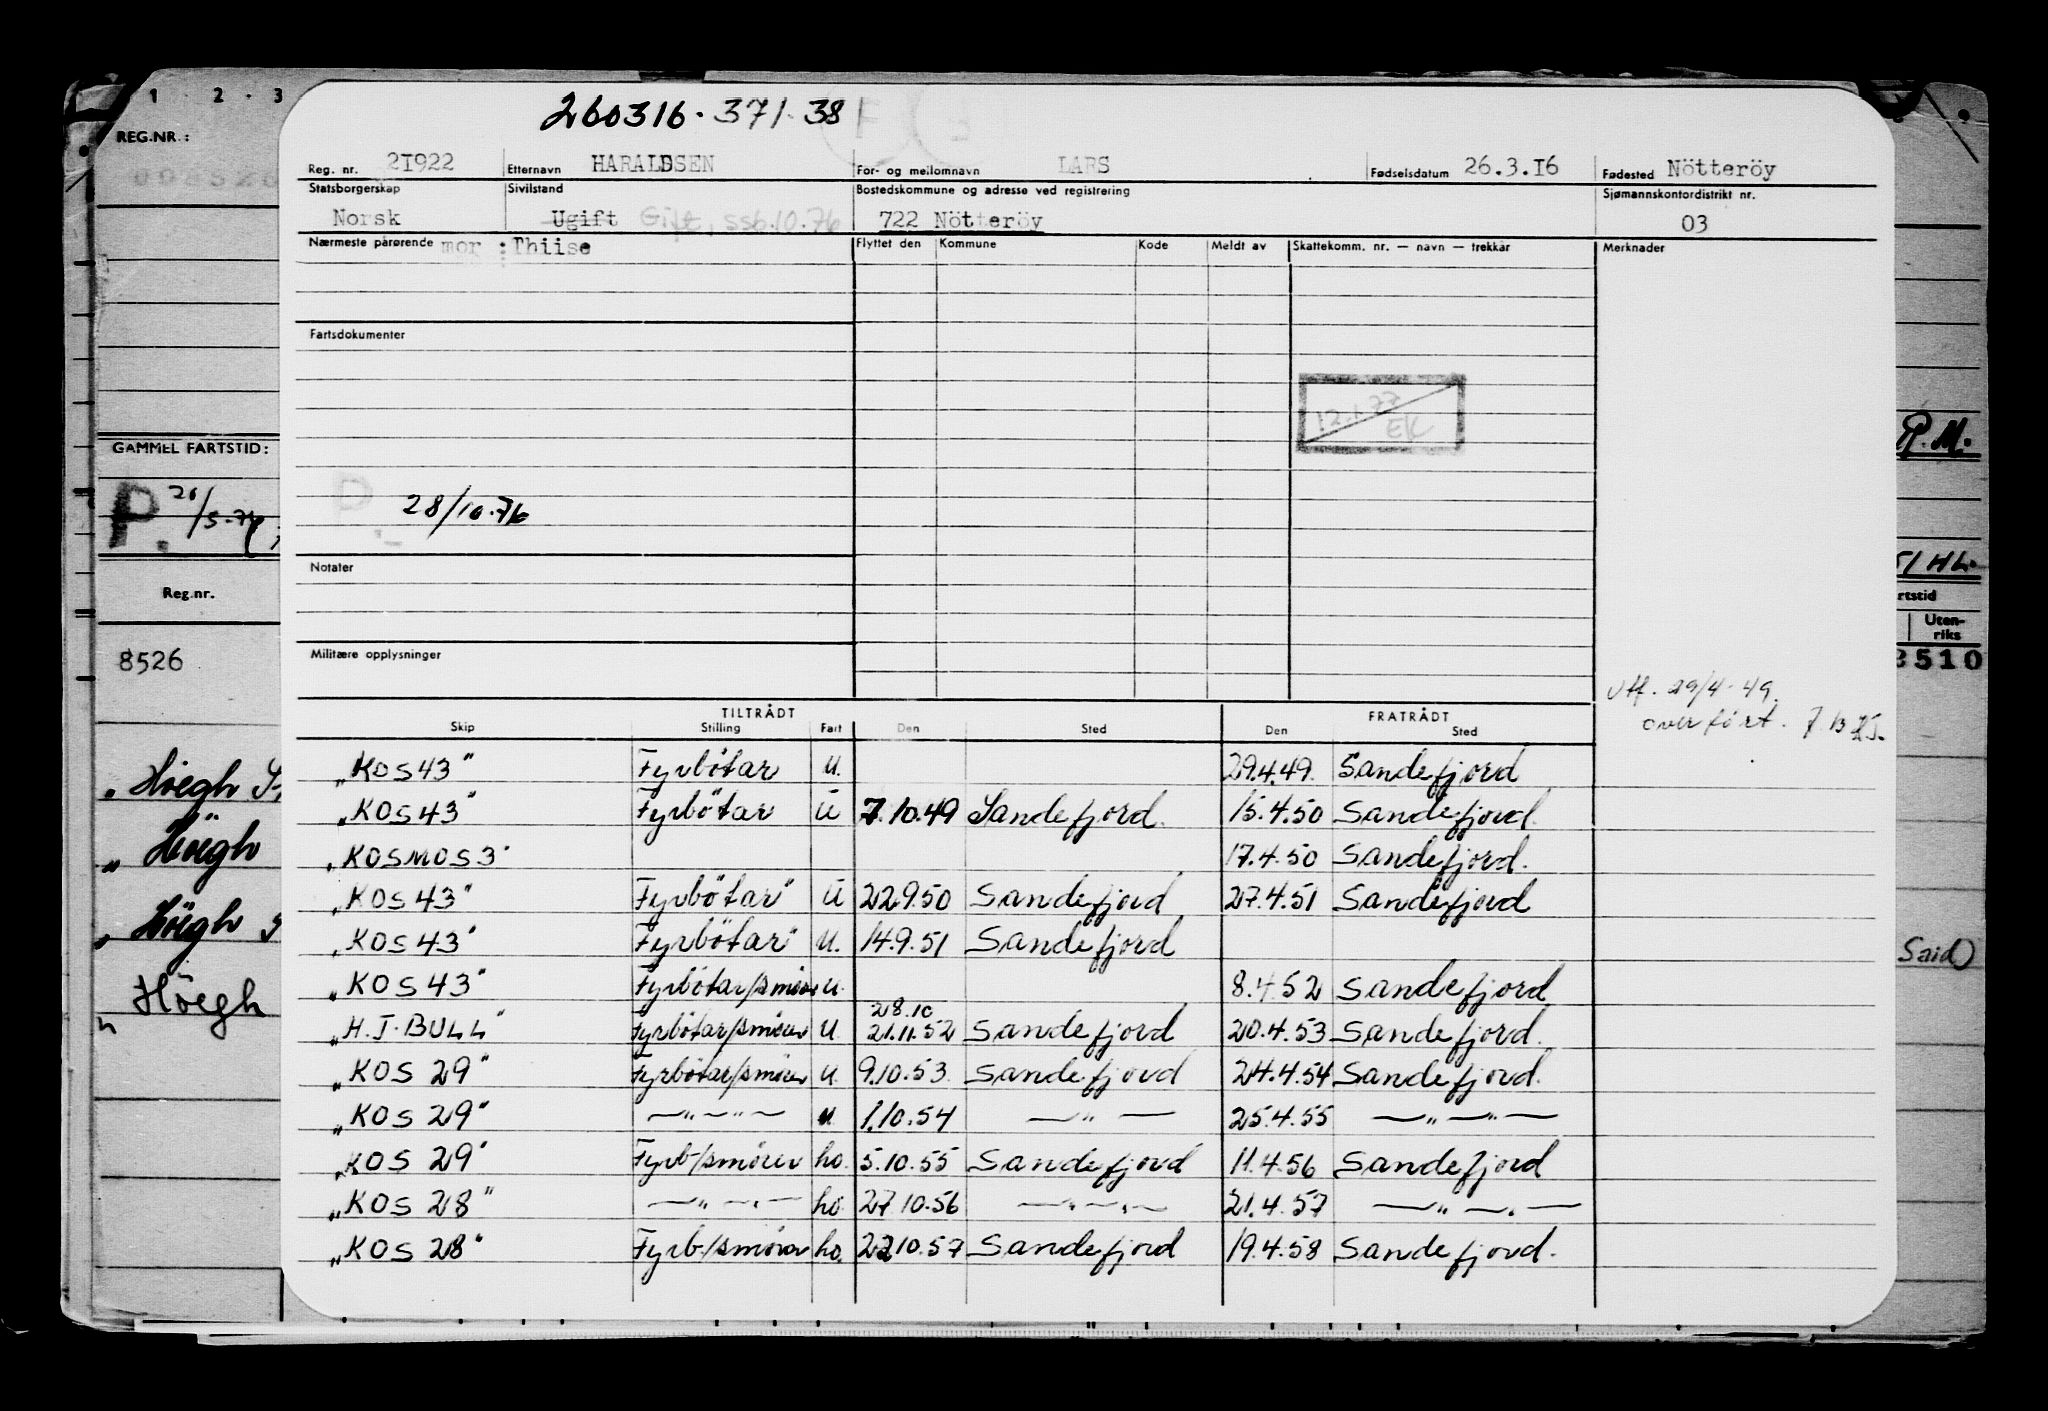 1 · 2 · 3
REG.NR.:
260316.371.38
Reg. nr. 2I922 Etternavn HARALDSEN For- og mellomnavn LARS Fødselsdatum 26.3.I6 Fødested Nötteröy
Statsborgerskap Sivilstand Bostedskommune og adresse ved registrering Sjømannskontordistrikt nr.
Norsk Ugift Gift, ss6.10.76 722 Nötteröy 03
Nærmeste pårørende mor : Thiise Flyttet den Kommune Kode Meldt av Skattekomm. nr. — navn — trekkår Merknader
Fartsdokumenter
12.1.77
EK
GAMMEL FARTSTID:
P. 26/5-76
28/10.76
R.M.
Notater
51 HL.
Reg.nr.
rtstid
Uten-
riks
8526
Militære opplysninger
3510
Utf. 29/4-49.
overført.
TILTRÅDT FRATRÅDT
Skip Stilling Fart Den Sted Den Sted
„KOS 43" Fyrbötar u. 29.4.49. Sandefjord
„KOS 43" Fyrbötar U 7.10.49 Sandefjord. 15.4.50 Sandefjord.
„KOSMOS 3" 17.4.50 Sandefjord.
„KOS 43" Fyrbötar" U 22.9.50 Sandefjord 27.4.51 Sandefjord
„KOS 43" Fyrbötar" U. 14.9.51 Sandefjord
„KOS 43" Fyrbötar/smörer u. 8.4.52 Sandefjord
28.10
„H.J. BULL" Fyrbötar/smörer U 21.11.52 Sandefjord 20.4.53 Sandefjord.
„KOS 29" Fyrbötar/smörer u. 9.10.53 Sandefjord 24.4.54 Sandefjord.
„KOS 29" —"—"— u 1.10.54 —"— 25.4.55 —"—"—
„KOS 29" Fyrb-/smörer ho. 5.10.55 Sandefjord 11.4.56 Sandefjord
„KOS 28" —"—"— ho. 27.10.56 —"—"— 21.4.57 —"—"—
„KOS 28" Fyrb-/smörer ho. 22.10.57 Sandefjord 19.4.58 Sandefjord.
„ Höegh
„ Höegh
„ Höegh
„ Höegh
Said)